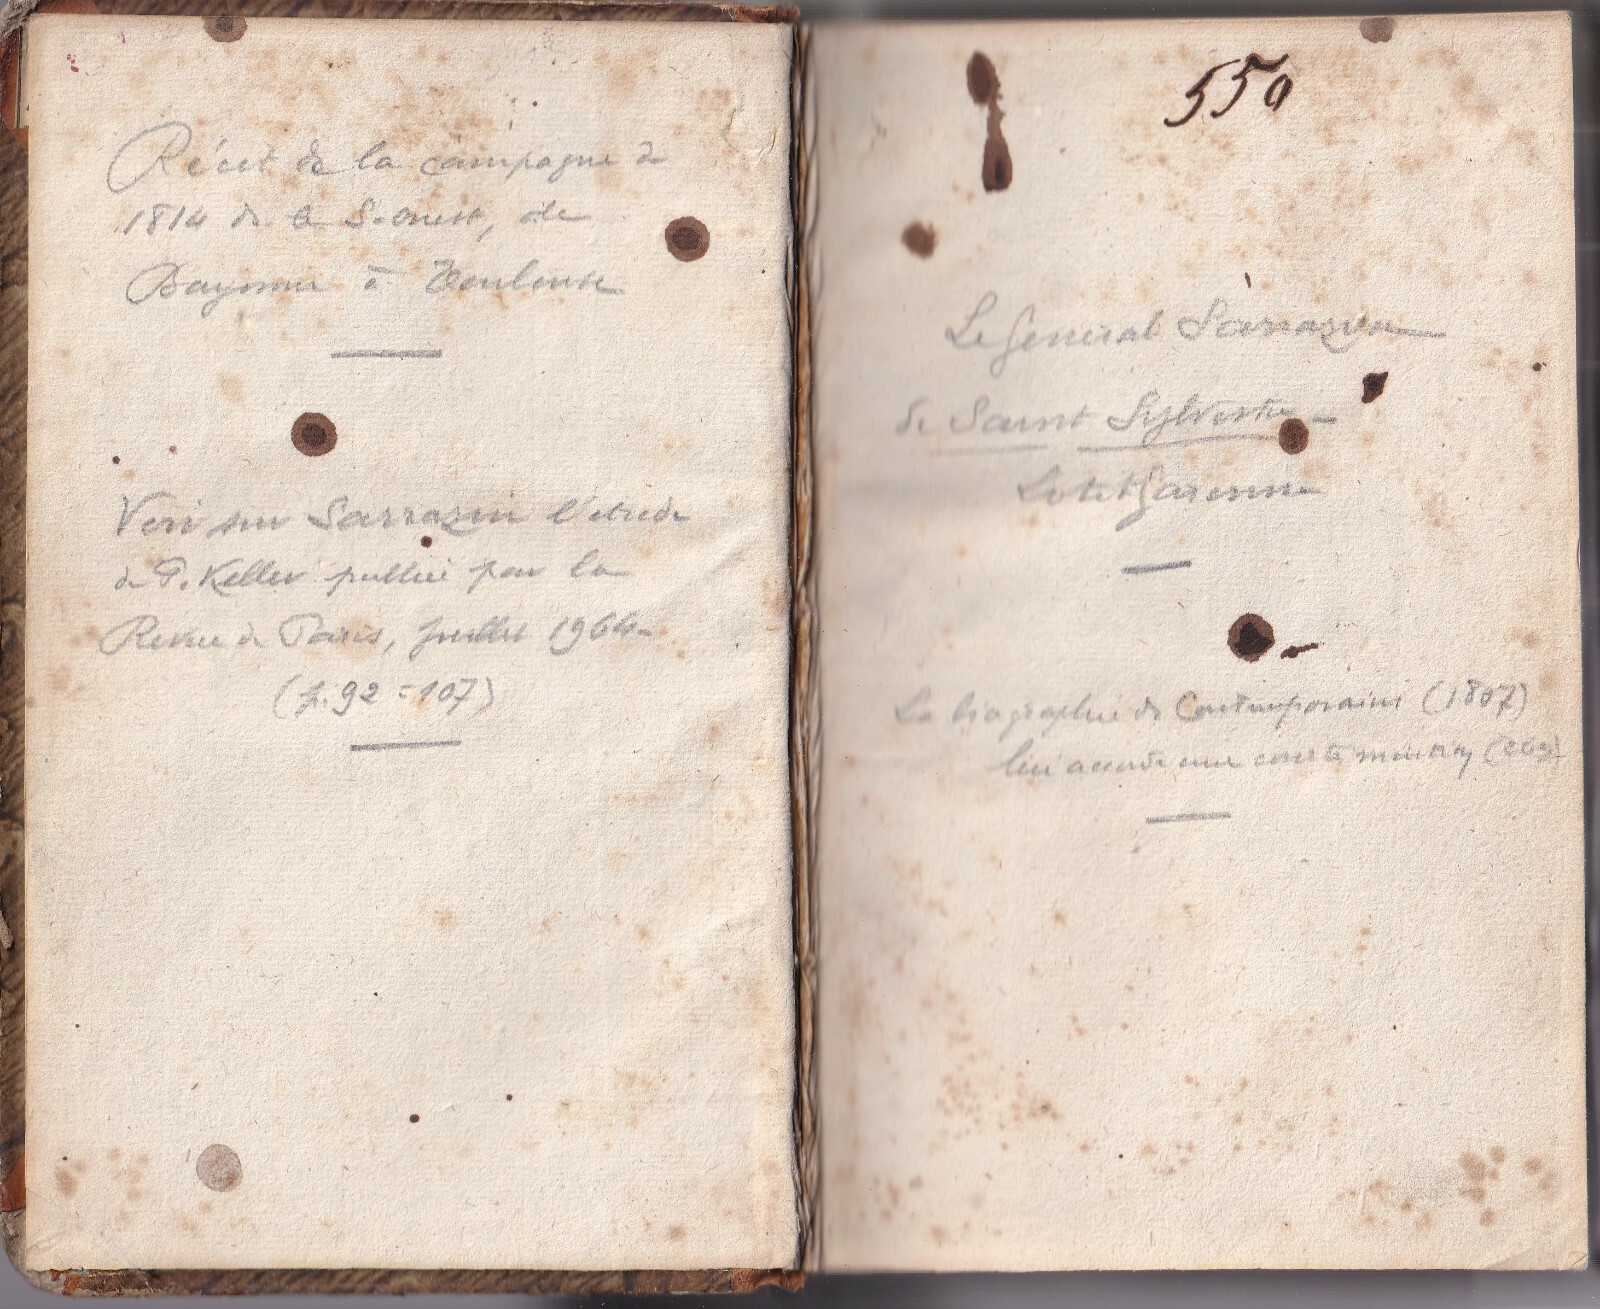 Récit de la campagne de
1814 de le S-ouest, de
Bayonne à Toulouse
Voir sur Sarrazin l'étude
de P. Keller publiée par la
Revue de Paris, Juillet 1964-
(p. 92=107)
550
Le Général Sarrazin
de Saint Sylvestre -
Lot et Garonne
La biographie des Contemporains (1807)
lui accorde une courte mention